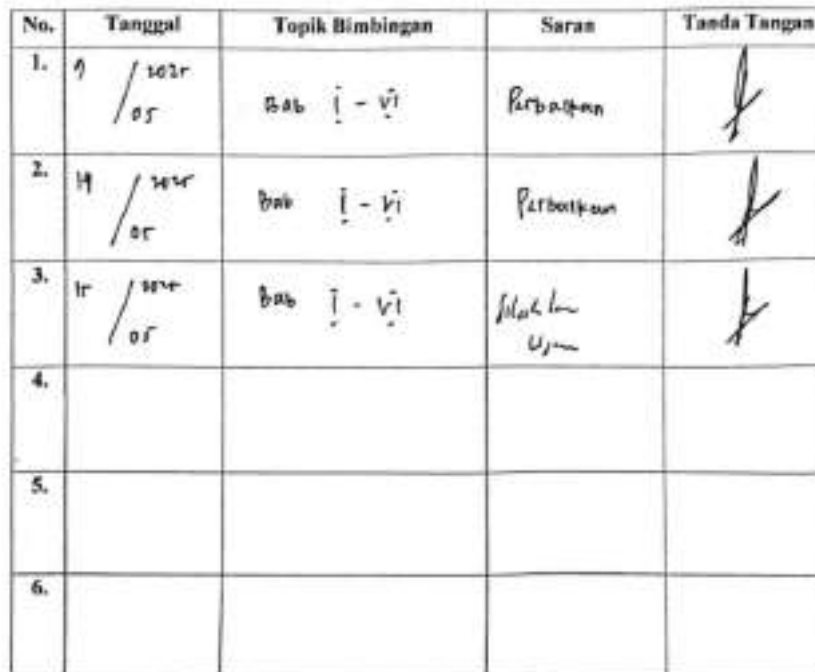 No. Tanggal Topik Bimbingan Saran Tanda Tangan
1. 9 / 2025 05 Bab I - VI Perbaikan
2. 14 / 2025 05 Bab I - VI Perbaikan
3. 15 / 2025 05 Bab I - VI Silahkan
Ujian
4.
5.
6.